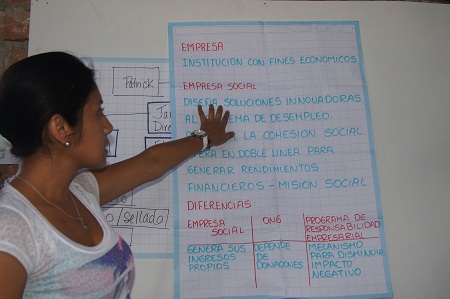 Patrick
Ja
Dire
/Sellado/
EMPRESA
INSTITUCIÓN CON FINES ECONOMICOS
EMPRESA SOCIAL
DISEÑA SOLUCIONES INNOVADORAS
AL EMA DE DESEMPLEO.
LA COHESION SOCIAL
OPERA EN DOBLE LINEA PARA
GENERAR RENDIMIENTOS
FINANCIEROS - MISION SOCIAL
DIFERENCIAS
EMPRESA SOCIAL
ONG
PROGRAMA DE
RESPONSABILIDAD
EMPRESARIAL
GENERA SUS
INGRESOS
PROPIOS
DEPENDE
DE
DONACIONES
MECANISMO
PARA DISMINUIR
IMPACTO
NEGATIVO